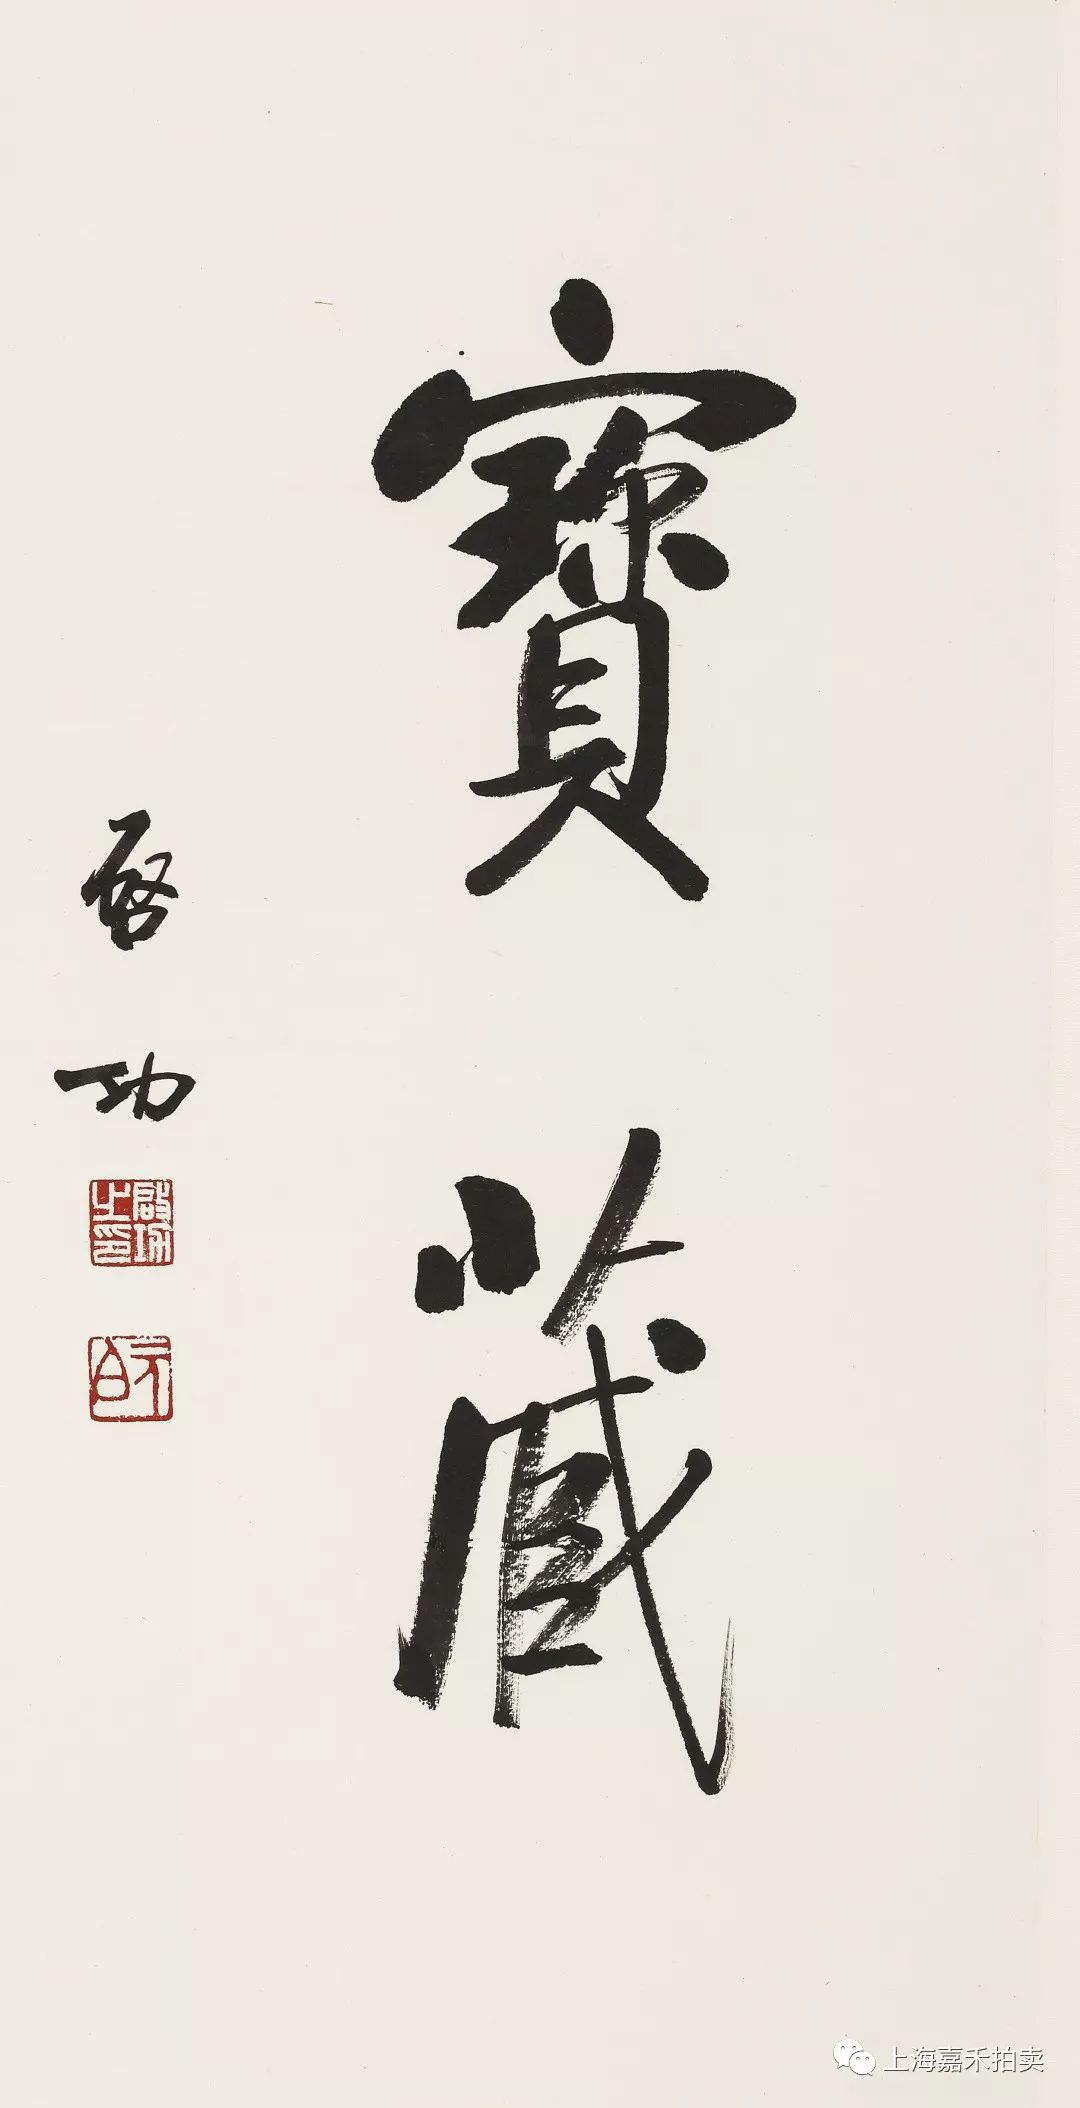 寶藏
啓功
啟功之印
元白
上海嘉禾拍卖